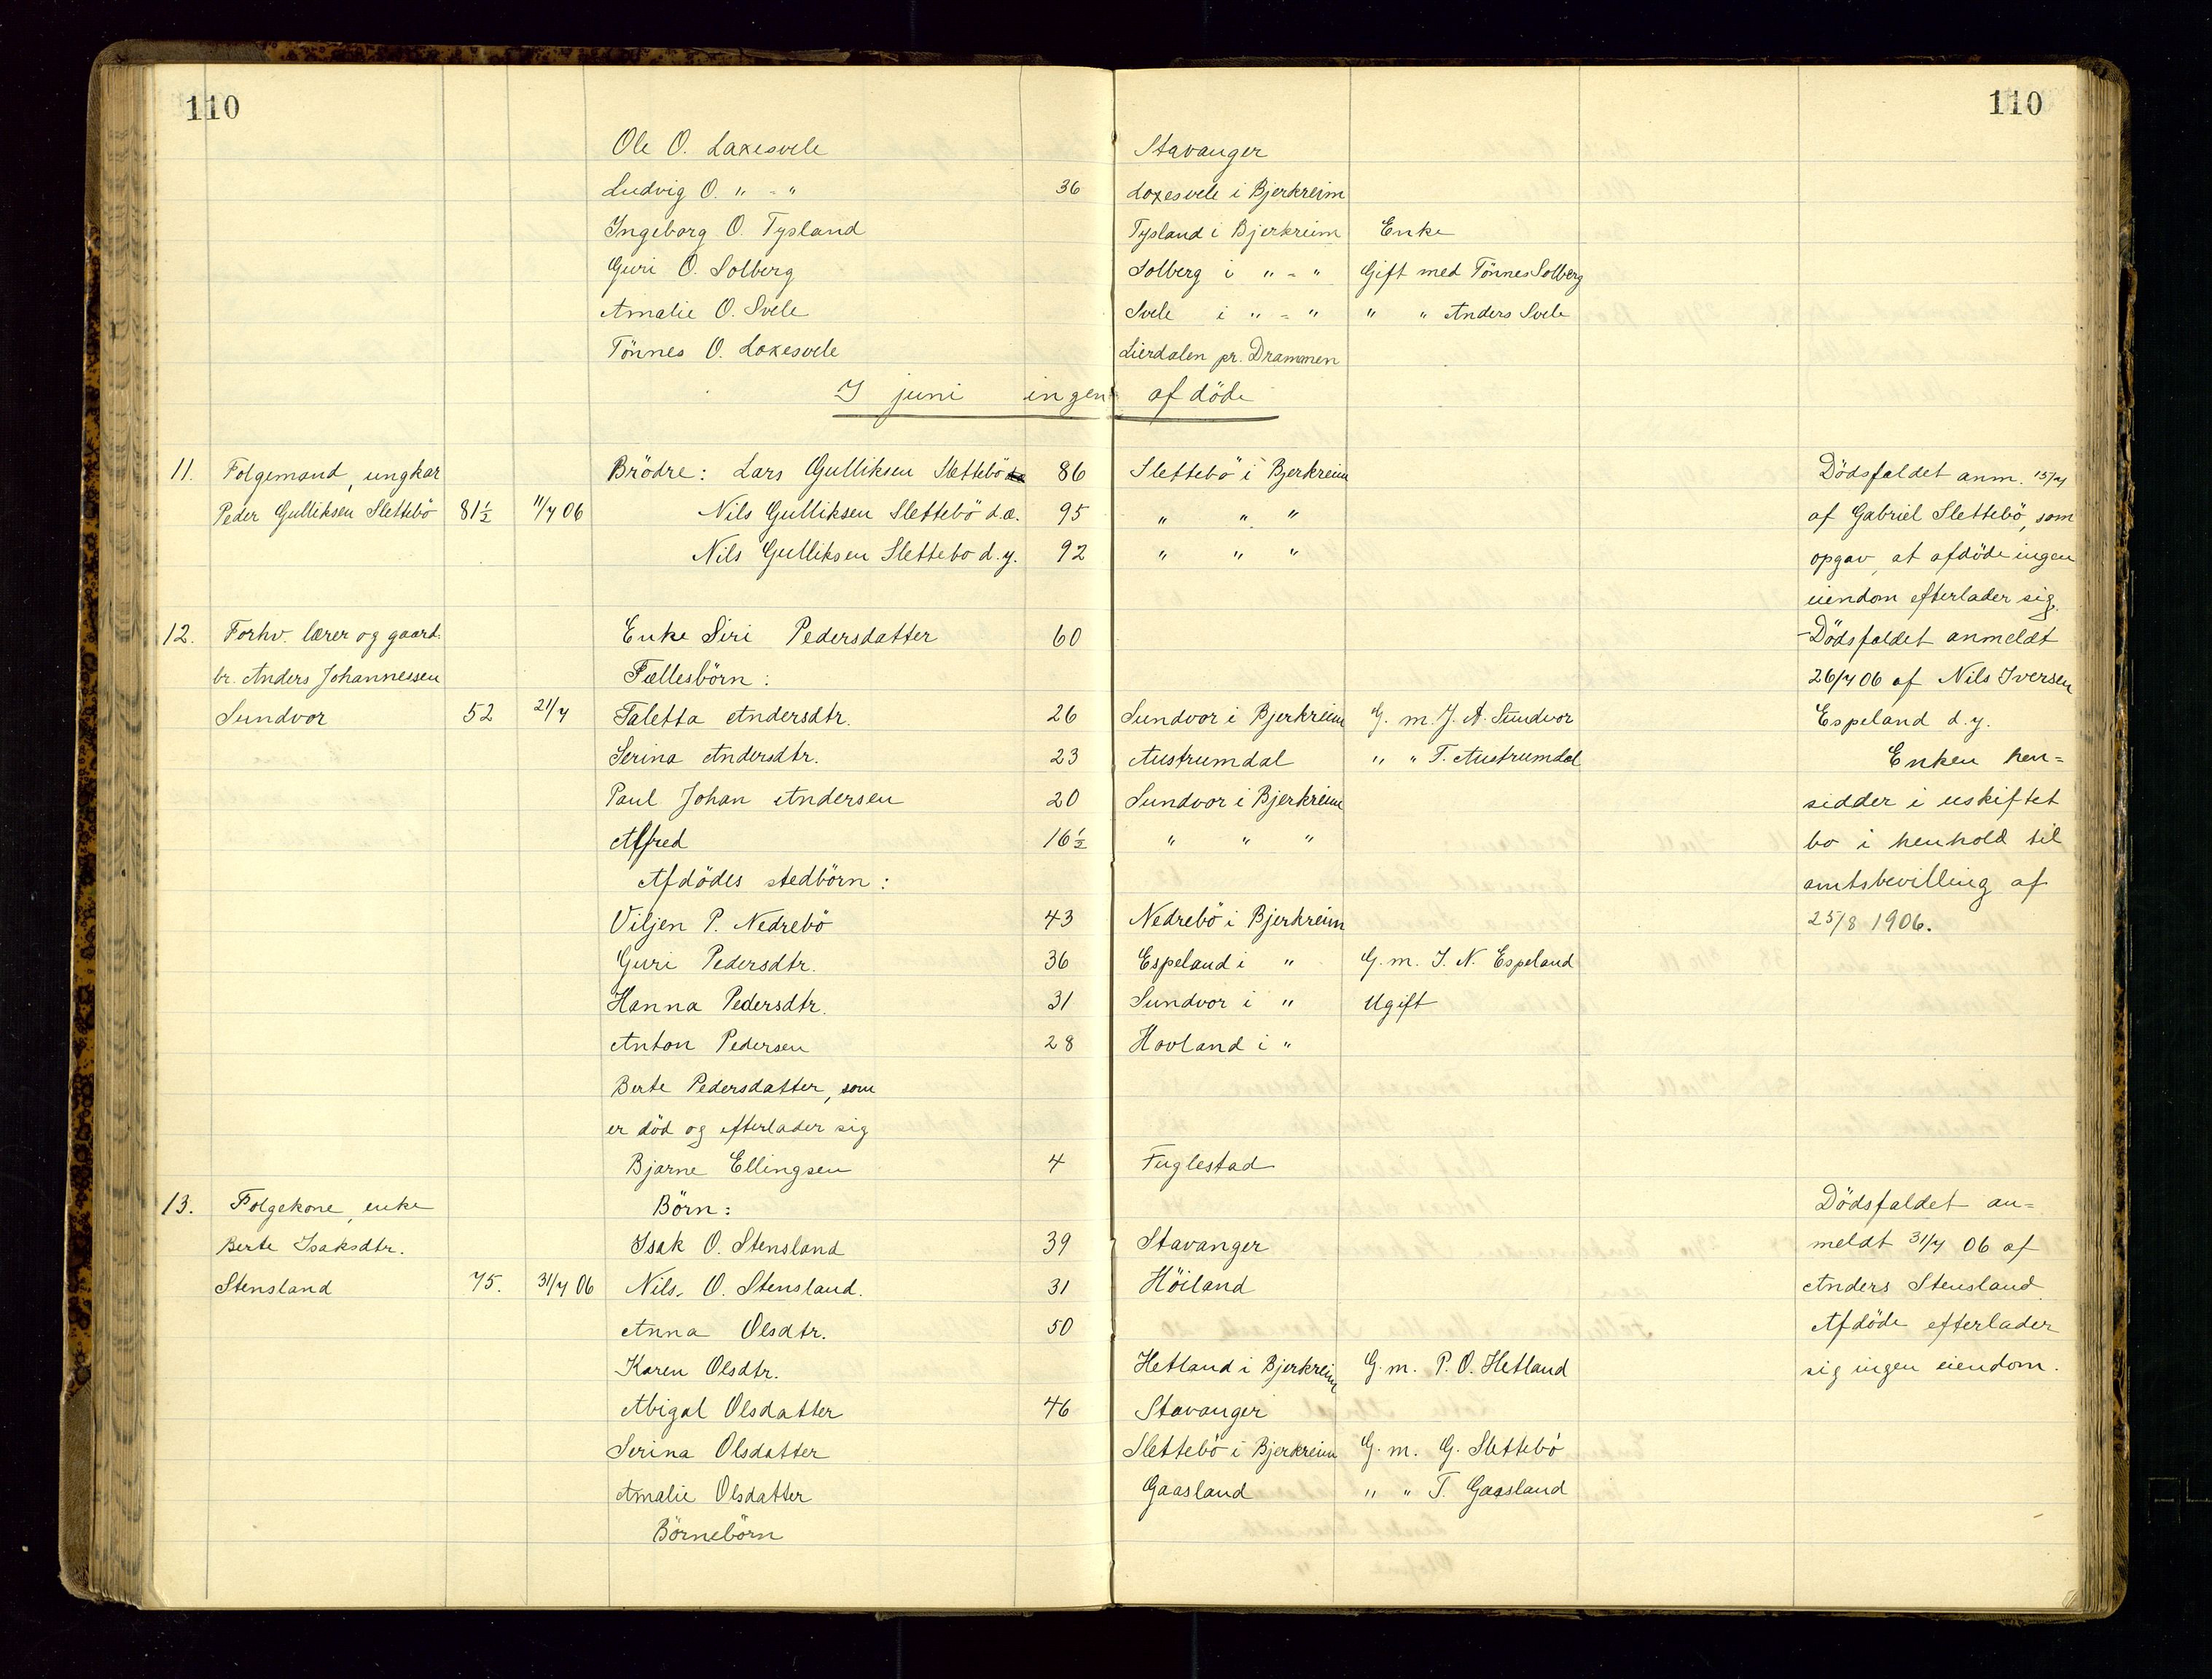 110 110
Ole O. Laxesvele Stavanger
Ludvig O. " - " 36 Loxesvele i Bjerkreim
Ingeborg O. Tysland Tysland i Bjerkreim Enke
Guri O. Solberg Solberg i " - " Gift med Tönnes Solberg
Amalie O. Svele Svele i " - " " " Anders Svele
Tönnes O. Loxesvele Lierdalen pr. Drammen
I juni ingen afdöde
11. Folgemand, ungkar Brödre: Lars Gulliksen Slettebö 86 Slettebö i Bjerkreim Dödsfaldet anm. 15/7
Peder Gulliksen Slettebö 81½ 11/7 06 Nils Gulliksen Slettebö d.æ. 95 " " " af Gabriel Slettebö, som
Nils Gulliksen Slettebo d.y. 92 " " " opgav, at afdöde ingen
eiendom efterlader sig.
12. Forhv. lærer og gaard- Enke Siri Pedersdatter 60 Dödsfaldet anmeldt
br. Anders Johannessen Fællesbörn: 26/7 06 af Nils Iversen
Sundvor 52 21/7 Taletta Andersdtr. 26 Sundvor i Bjerkreim G. m. J. A. Sundvor Espeland d.y.
Serina Andersdtr. 23 Austrumdal " " T. Austrumdal Enken hen=
Paul Johan Andersen 20 Sundvor i Bjerkreim sidder i uskiftet
Alfred 16½ " " " bo i henhold til
Afdödes stedbörn: amtsbevilling af
Viljen P. Nedrebö 43 Nedrebö i Bjerkreim 25/8 1906.
Guri Pedersdtr. 36 Espeland i " G. m. I. N. Espeland
Hanna Pedersdtr. 31 Sundvor i " Ugift
Anton Pedersen 28 Hovland i "
Berte Pedersdatter, som
er död og efterlader sig
Bjarne Ellingsen 4 Fuglestad
13. Folgekone, enke Börn: Dödsfaldet an=
Berte Isaksdtr. Isak O. Stensland 39 Stavanger meldt 31/7 06 af
Stensland 75. 31/7 06 Nils. O. Stensland. 31 Höiland Anders Stensland.
Anna Olsdtr. 50 Afdöde efterlader
Karen Olsdtr. Hetland i Bjerkreim G. m. P. O. Hetland sig ingen eiendom.
Abigal Olsdatter 46 Stavanger
Serina Olsdatter Slettebö i Bjerkreim G. m. G. Slettebö
Amalie Olsdatter Gaasland " " T. Gaasland
Börnebörn